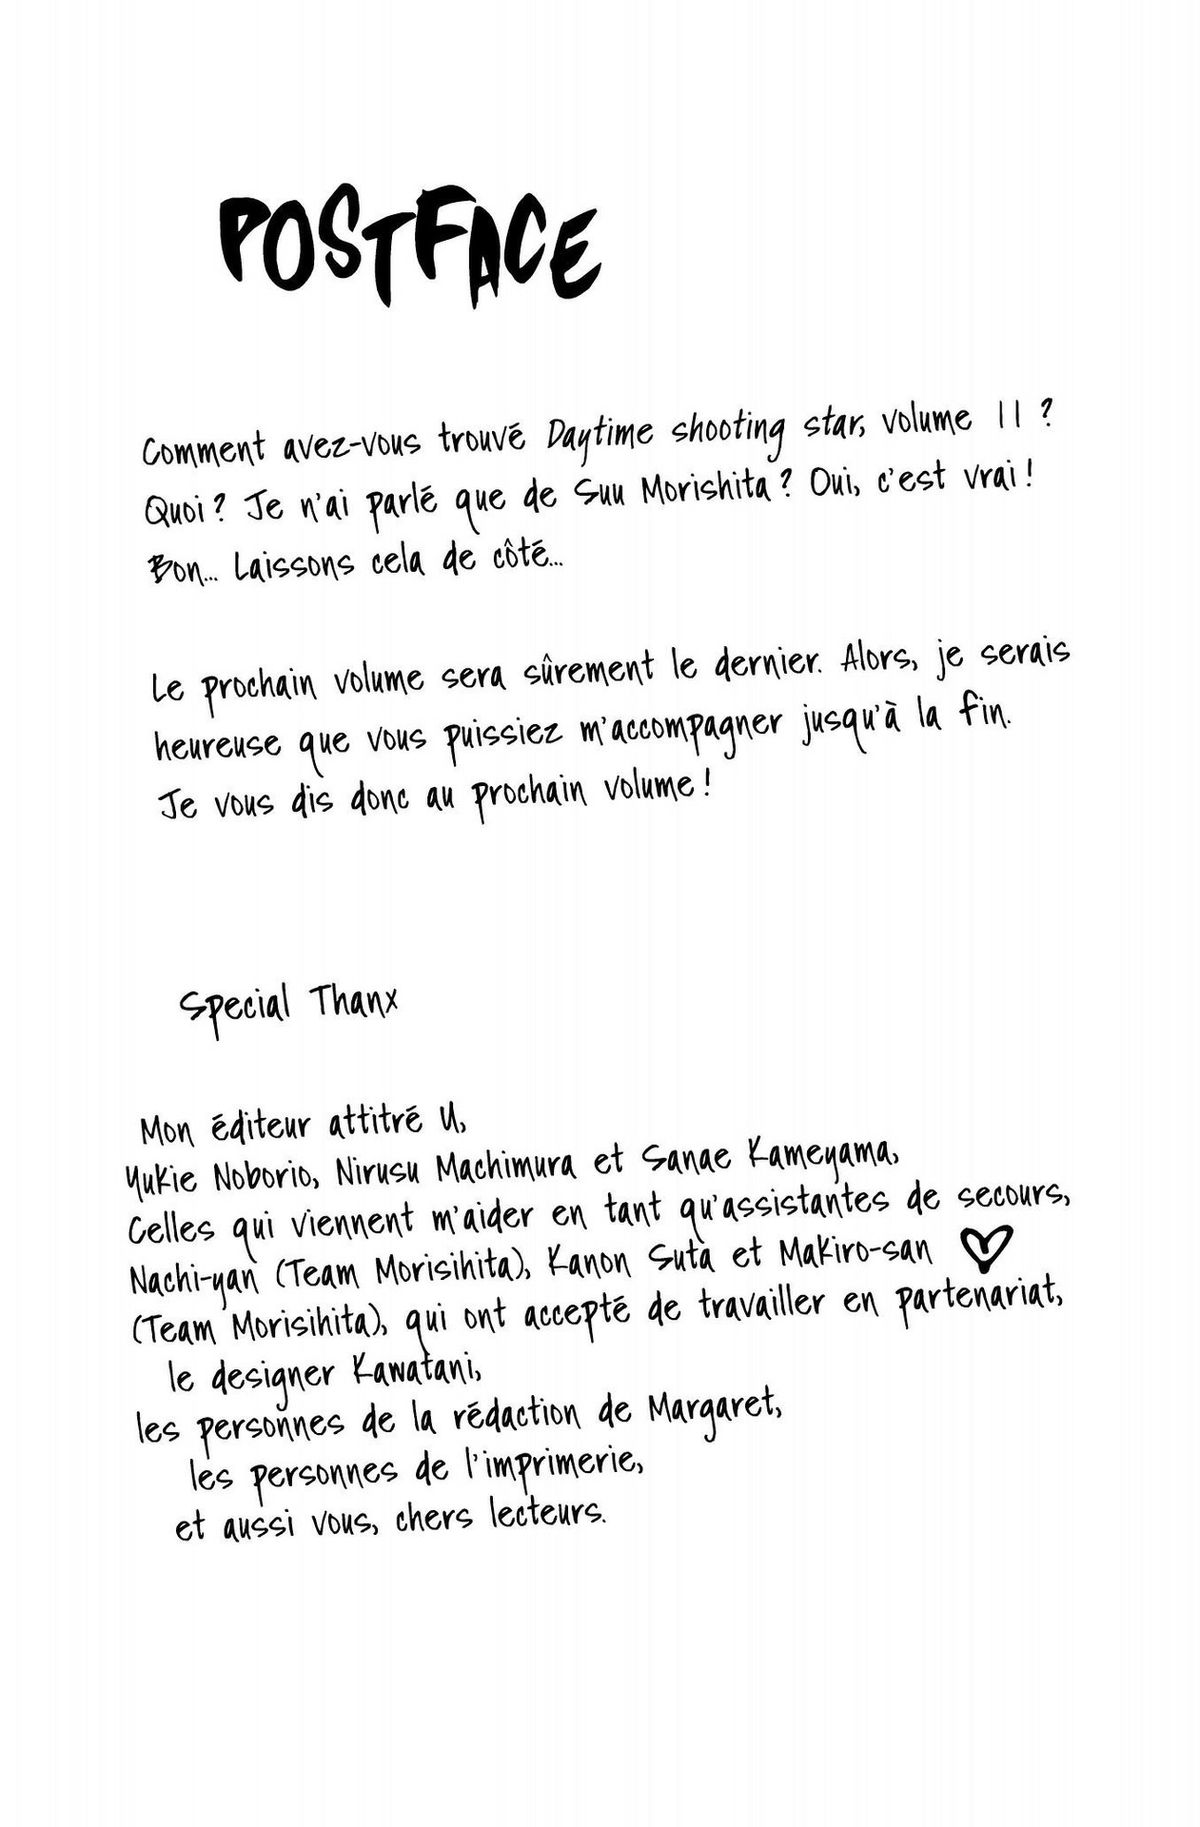 POSTFACE
Comment avez-vous trouvé Daytime shooting star, volume 11 ?
Quoi ? Je n'ai parlé que de Suu Morishita ? Oui, c'est vrai !
Bon... Laissons cela de côté...
Le prochain volume sera sûrement le dernier. Alors, je serais
heureuse que vous puissiez m'accompagner jusqu'à la fin.
Je vous dis donc au prochain volume !
Special Thanx
Mon éditeur attitré U,
Yukie Noborio, Nirusu Machimura et Sanae Kameyama,
Celles qui viennent m'aider en tant qu'assistantes de secours,
Nachi-yan (Team Morisihita), Kanon Suta et Makiro-san ♡
(Team Morisihita), qui ont accepté de travailler en partenariat,
le designer Kawatani,
les personnes de la rédaction de Margaret,
les personnes de l'imprimerie,
et aussi vous, chers lecteurs.